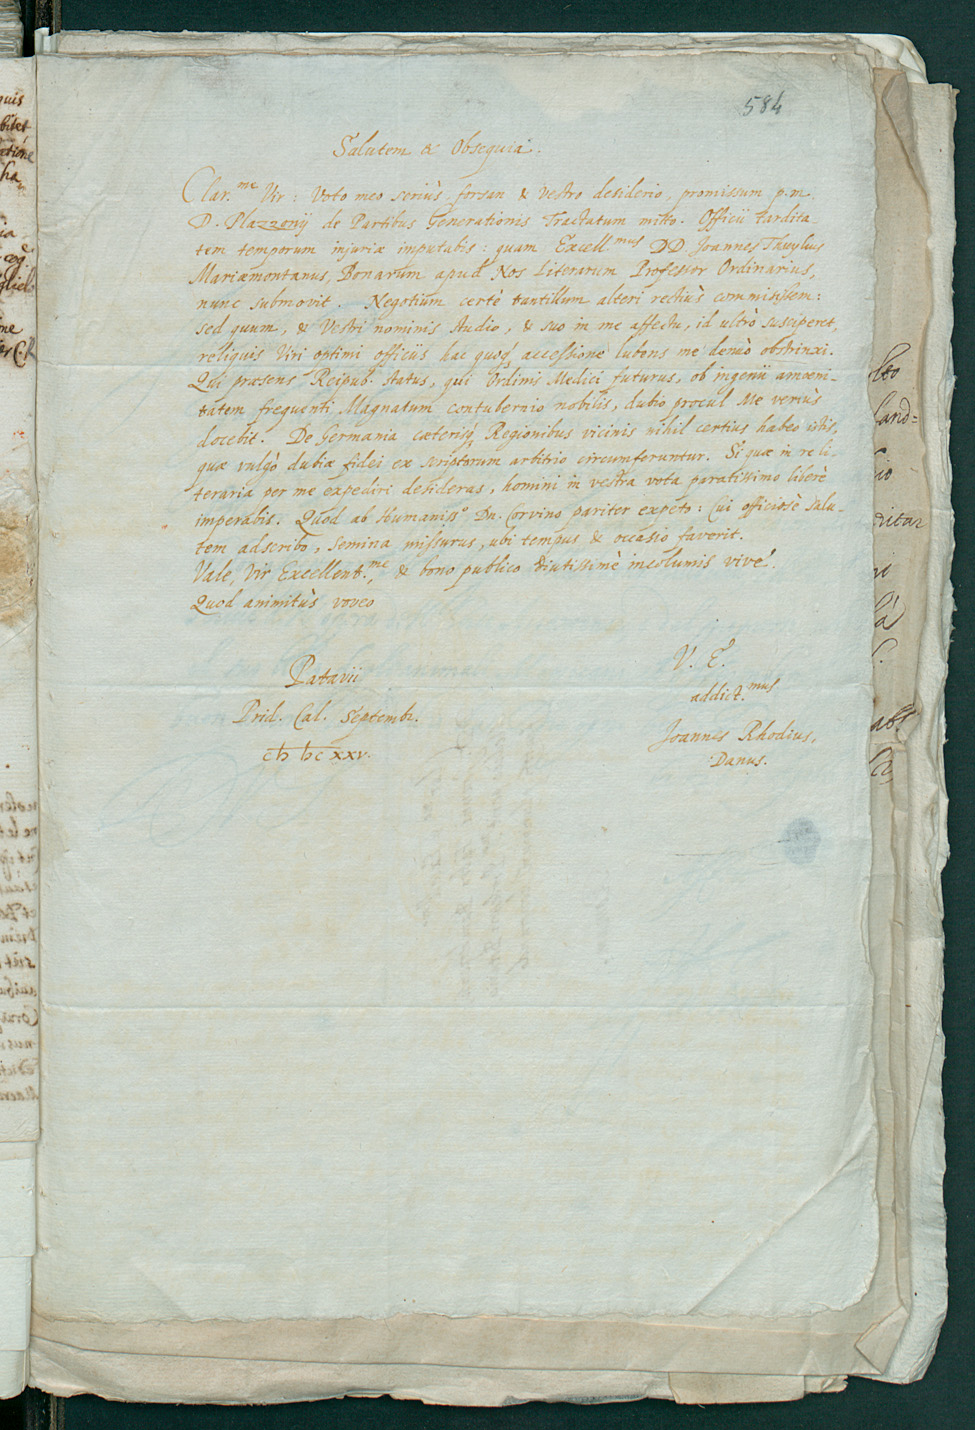 584
Salutem & Obsequia.
Clar.me Vir: Voto meo seriùs forsan & vestro desiderio, promissum p.m.
D. Plazzonij de Partibus Generationis Tractatum mitto. Officii tardita-
tem temporum injuriæ imputabis: quam Excellmus DD. Joannes Thuylius
Mariæmontanus, Bonarum apud Nos Literarum Professor Ordinarius,
nunc submovit. Negotium certè tantillum alteri rectiùs commisissem:
sed quum, & Vestri nominis studio, & suo in me affectu, id ultrò susciperet,
reliquis Viri optimi officiis hac quoq; accessione lubens me denuò obstrinxi.
Qui præsens Reipub. status, qui Ordinis Medici futurus, ob ingenii amœni-
tatem frequenti Magnatum contubernio nobilis, dubio procul Me veriùs
docebit. De Germania cæterisq; Regionibus vicinis nihil certius habeo istis,
quæ vulgò dubiæ fidei ex scriptorum arbitrio circumferuntur. Si quæ in re li-
teraria per me expediri desideras, homini in vestra vota paratissimo liberè
imperabis. Quod ab Humaniss.o Dn. Corvino pariter expeto: Cui officiosè salu-
tem adscribo, semina missurus, ubi tempus & occasio faverit.
Vale, Vir Excellent.me, & bono publico diutissimè incolumis vive.
Quod animitùs voveo
Patavii
Prid. Cal. Septembr.
CIↃ IↃC XXV.
V. E.
addict.mus
Joannes Rhodius,
Danus.